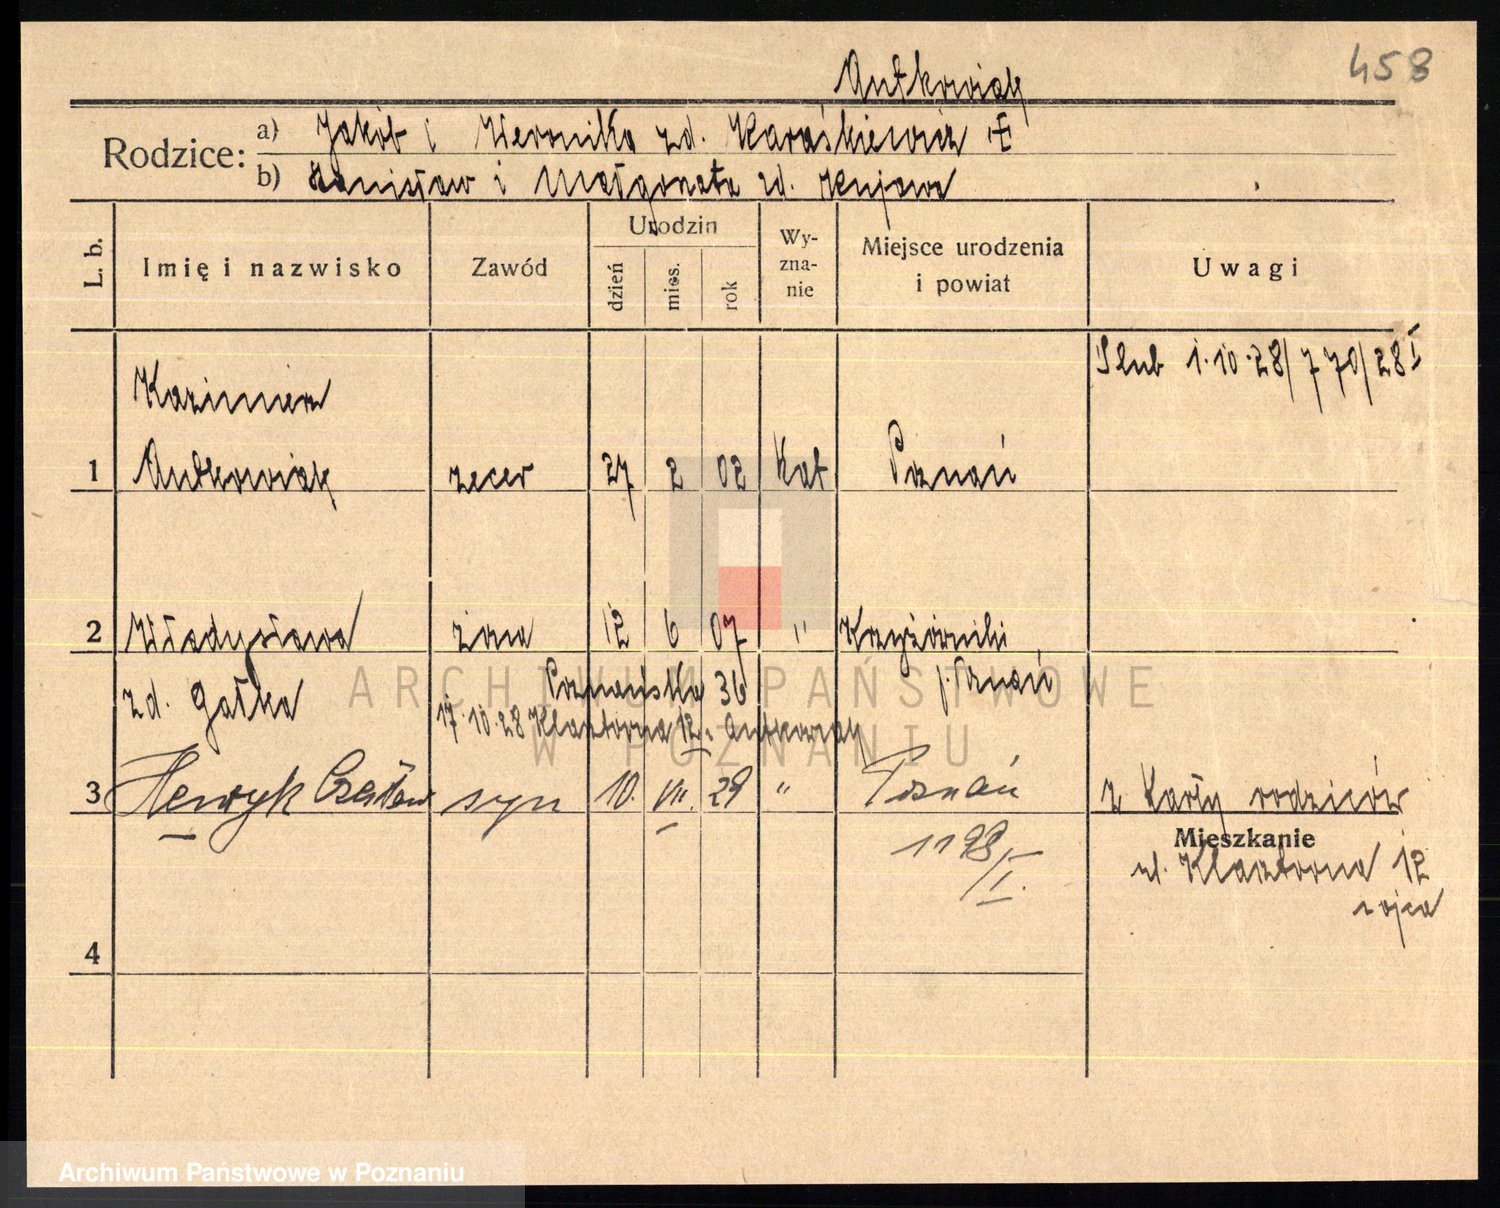 458
Antkowiak
Rodzice: a) Jakób i Weronika zd. Karaśkiewicz +
b) Stanisław i Małgorzata zd. Kujawa
L. b.
Imię i nazwisko
Zawód
Urodzin
dzień
mies.
rok
Wy-
zna-
nie
Miejsce urodzenia
i powiat
Uwagi
Ślub 1.10.28/770/28 I
Kazimierz
1 Antkowiak zecer 27 2 02 Kat Poznań
2 Władysława żona 12 6 07 " Krzyżowniki
zd. Gałka Poznańska 36 p. Poznań
17.10.28 Klasztorna 12. Antkowiak
3 Henryk Czesław syn 10. VII. 29 " Poznań z karty rodziców
1198/I.
Mieszkanie
ul. Klasztorna 12
z ojca
4
ARCHIWUM PAŃSTWOWE
W POZNANIU
Archiwum Państwowe w Poznaniu